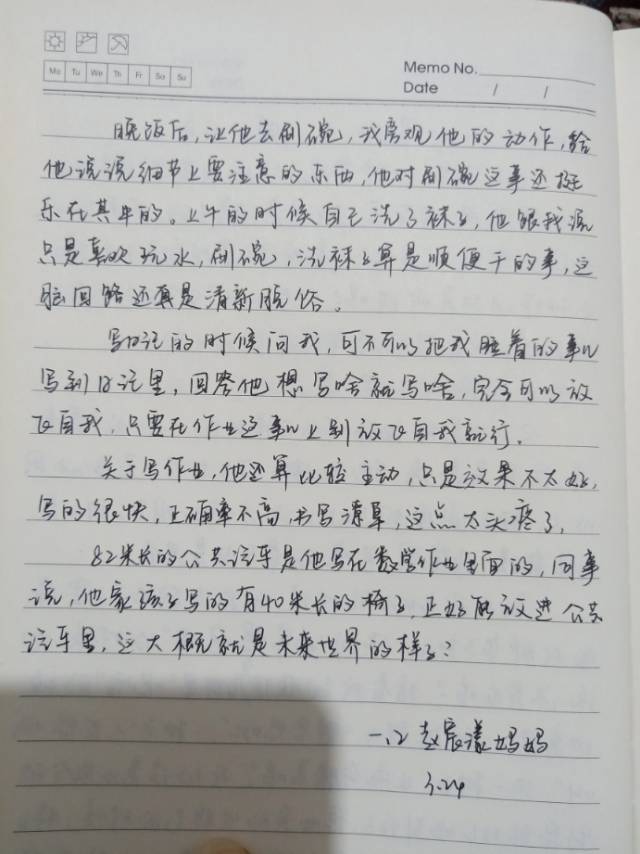 Mo Tu We Th Fr Sa Su
Memo No.
Date / /
晚饭后，让他去刷碗，我旁观他的动作，给
他说说细节上要注意的东西，他对刷碗这事还挺
乐在其中的。上午的时候自己洗了袜子，他跟我说
只是喜欢玩水，刷碗，洗袜子算是顺便干的事，这
脑回路还真是清新脱俗。
写日记的时候问我，可不可以把我睡着的事儿
写到日记里，回答他想写啥就写啥，完全可以放
飞自我，只要在作业这事儿上别放飞自我就行。
关于写作业，他还算比较主动，只是效果不太好，
写的很快，正确率不高，书写潦草，这点太头疼了，
82米长的公共汽车是他写在数学作业里面的，同事
说，他家孩子写的有40米长的椅子，正好能放进公共
汽车里，这大概就是未来世界的样子？
一.2 赵宸漾妈妈
3.24